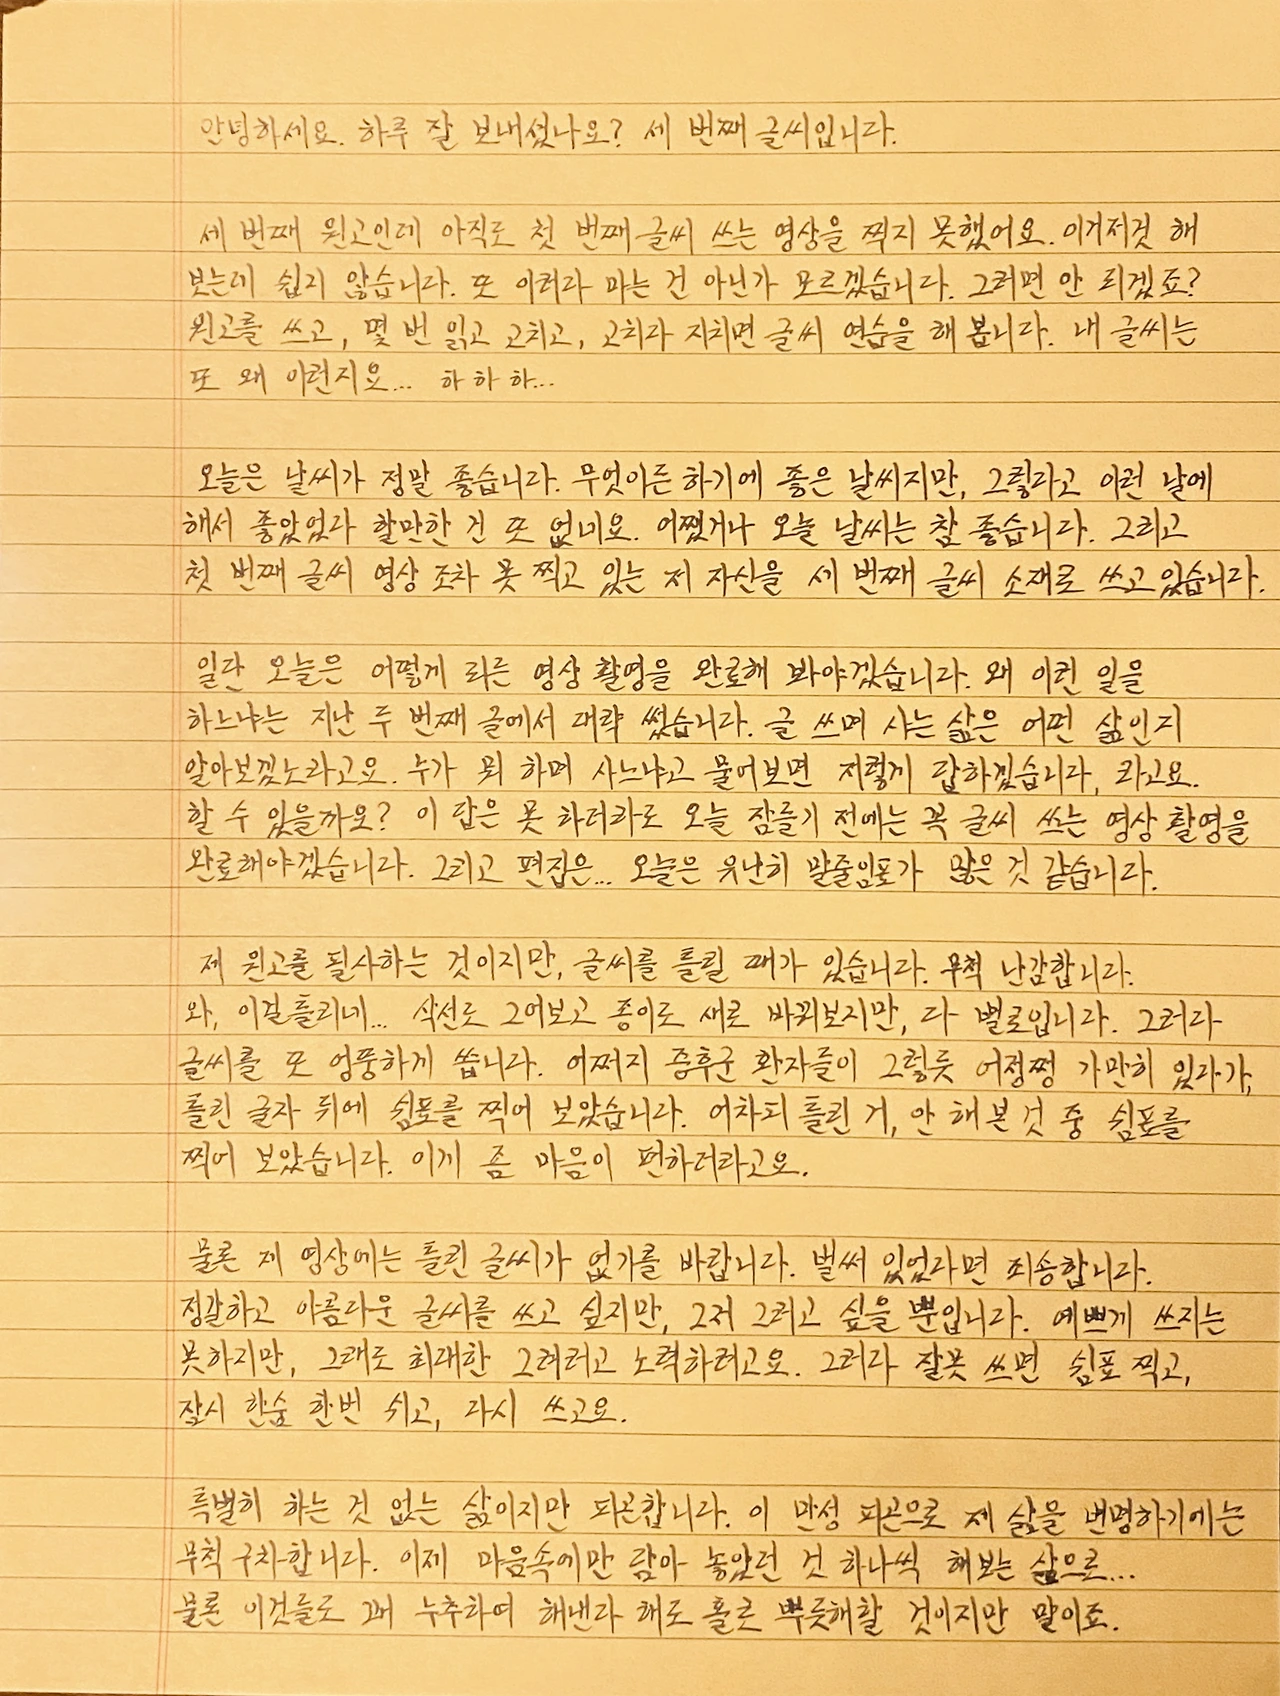 안녕하세요. 하루 잘 보내셨나요? 세 번째 글씨입니다.
세 번째 원고인데 아직도 첫 번째 글씨 쓰는 영상을 찍지 못했어요. 이거저것 해
보는데 쉽지 않습니다. 또 이러다 마는 건 아닌가 모르겠습니다. 그러면 안 되겠죠?
원고를 쓰고, 몇 번 읽고 고치고, 고치다 지치면 글씨 연습을 해 봅니다. 내 글씨는
또 왜 이런지요... 하 하 하...
오늘은 날씨가 정말 좋습니다. 무엇이든 하기에 좋은 날씨지만, 그렇다고 이런 날에
해서 좋았었다 할만한 건 또 없네요. 어쨌거나 오늘 날씨는 참 좋습니다. 그리고
첫 번째 글씨 영상 조차 못 찍고 있는 저 자신을 세 번째 글씨 소재로 쓰고 있습니다.
일단 오늘은 어떻게 되든 영상 촬영을 완료해 봐야겠습니다. 왜 이런 일을
하느냐는 지난 두 번째 글에서 대략 썼습니다. 글 쓰며 사는 삶은 어떤 삶인지
알아보겠노라고요. 누가 뭐 하며 사느냐고 물어보면 저렇게 답하겠습니다, 라고요.
할 수 있을까요? 이 답은 못 하더라도 오늘 잠들기 전에는 꼭 글씨 쓰는 영상 촬영을
완료해야겠습니다. 그리고 편집은... 오늘은 유난히 말줄임표가 많은 것 같습니다.
제 원고를 필사하는 것이지만, 글씨를 틀릴 때가 있습니다. 무척 난감합니다.
와, 이걸 틀리네... 삭선도 그어보고 종이도 새로 바꿔보지만, 다 별로입니다. 그러다
글씨를 또 엉뚱하게 씁니다. 어쩌지 증후군 환자들이 그렇듯 어정쩡 가만히 있다가,
틀린 글자 뒤에 쉼표를 찍어 보았습니다. 어차피 틀린 거, 안 해 본 것 중 쉼표를
찍어 보았습니다. 이게 좀 마음이 편하더라고요.
물론 제 영상에는 틀린 글씨가 없기를 바랍니다. 벌써 있었다면 죄송합니다.
정갈하고 아름다운 글씨를 쓰고 싶지만, 그저 그러고 싶을 뿐입니다. 예쁘게 쓰지는
못하지만, 그래도 최대한 그려려고 노력하려고요. 그러다 잘못 쓰면 쉼표 찍고,
잠시 한숨 한번 쉬고, 다시 쓰고요.
특별히 하는 것 없는 삶이지만 피곤합니다. 이 만성 피곤으로 제 삶을 변명하기에는
무척 구차합니다. 이제 마음속에만 담아 놓았던 것 하나씩 해보는 삶으로...
물론 이것들도 꽤 누추하여 해낸다 해도 홀로 뿌듯해할 것이지만 말이죠.